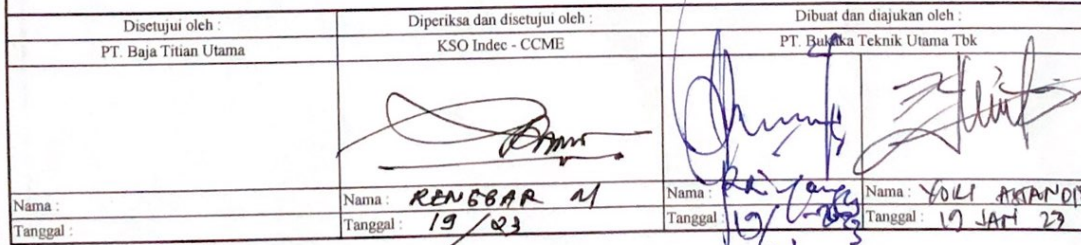 Disetujui oleh : Diperiksa dan disetujui oleh : Dibuat dan diajukan oleh :
PT. Baja Titian Utama KSO Indec - CCME PT. Bukaka Teknik Utama Tbk
Nama : Nama : RENGGAR M Nama : Nama : YOKI
Tanggal : Tanggal : 19 / 23 Tanggal : 19/ Tanggal : 19 JAN 23